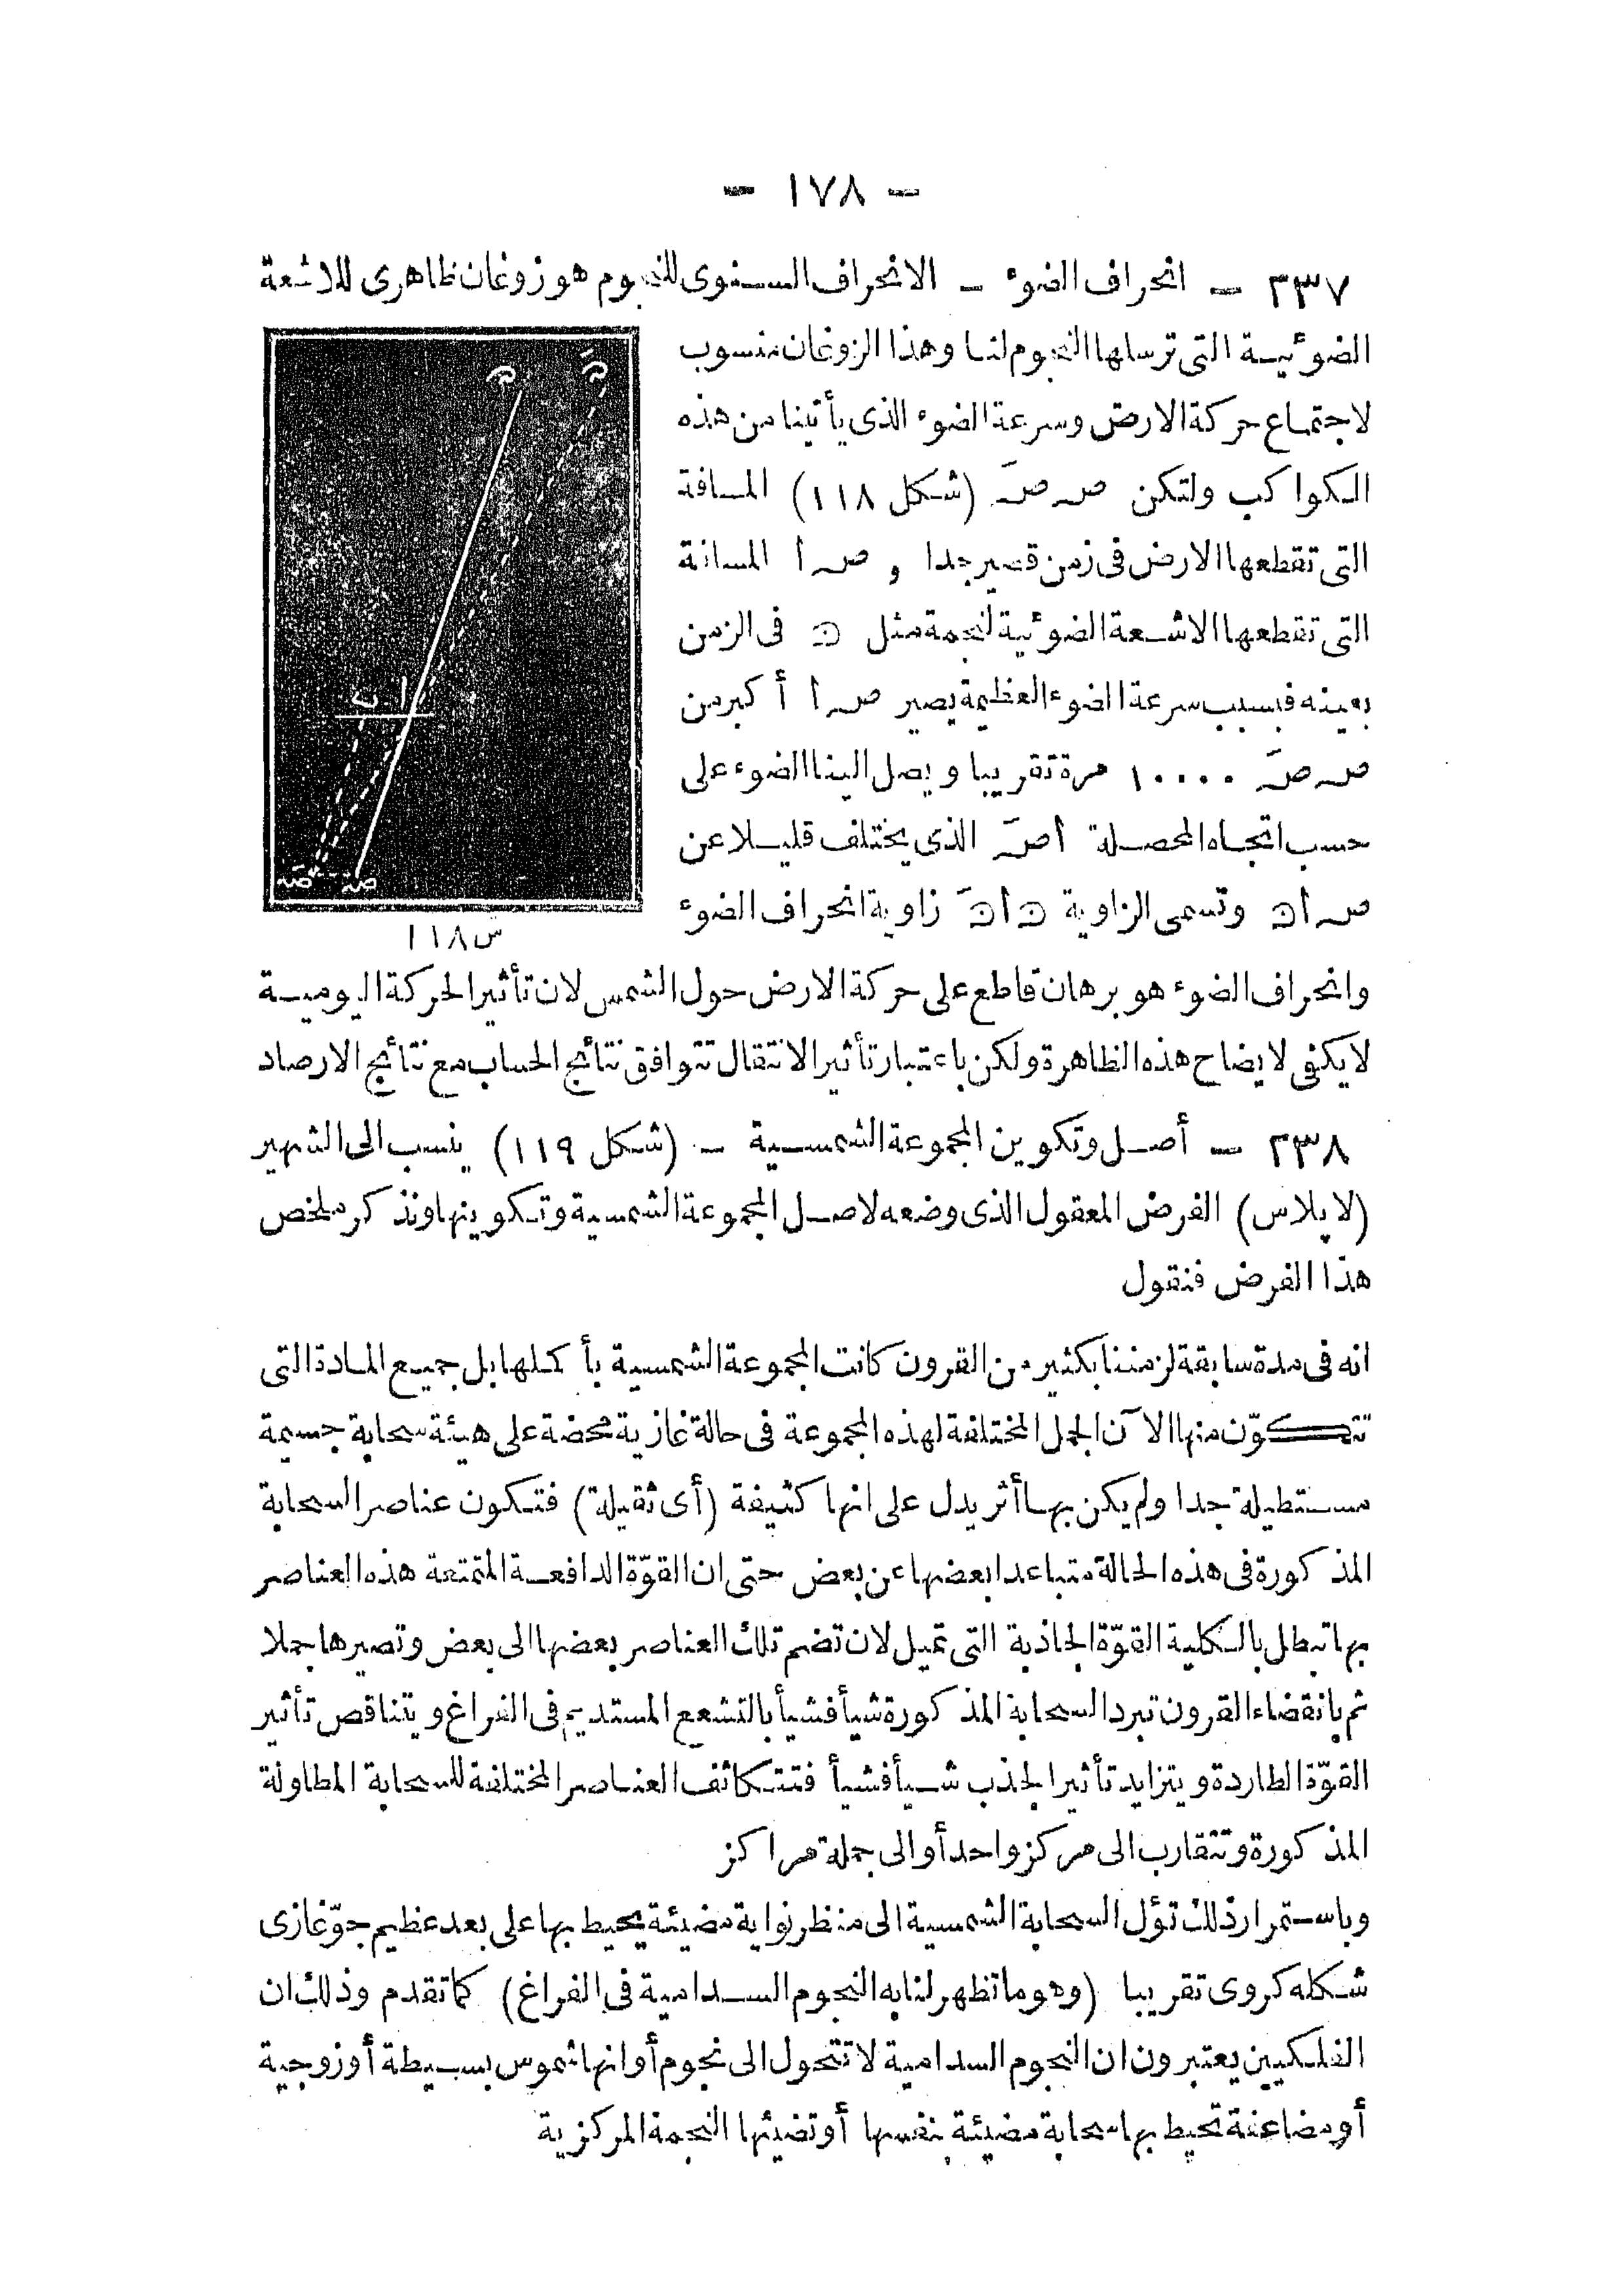 – ١٧٨ –
٢٣٧ – انحراف الضوء – الانحراف السنوى للنجوم هو زوغان ظاهرى للاشعة
الضوئية التى ترسلها النجوم لنا وهذا الزوغان منسوب
لاجتماع حركة الارض وسرعة الضوء الذى يأتينا من هذه
الكواكب ولتكن صہ صَہ (شكل ١١٨) المسافة
التى تقطعها الارض فى زمن قصير جدا و صہ ا المسافة
التى تقطعها الاشعة الضوئية لنجمة مثل ن فى الزمن
بعينه فبسبب سرعة الضوء العظيمة يصير صہ ا أكبر من
صہ صَہ ١٠٠٠٠ مرة تقريبا ويصل الينا الضوء على
حسب اتجاه المحصلة ا صَہ الذى يختلف قليلا عن
صہ ا ن وتسمى الزاوية ن ا نَ زاوية انحراف الضوء
ن نَ
ا ب
صہ صَہ
س ١١٨
وانحراف الضوء هو برهان قاطع على حركة الارض حول الشمس لان تأثير الحركة اليومية
لا يكفى لايضاح هذه الظاهرة ولكن باعتبار تأثير الانتقال تتوافق نتائج الحساب مع نتائج الارصاد
٢٣٨ – أصل وتكوين المجموعة الشمسية – (شكل ١١٩) ينسب الى الشهير
(لا پلاس) الفرض المعقول الذى وضعه لاصل المجموعة الشمسية وتكوينها ونذكر ملخص
هذا الفرض فنقول
انه فى مدة سابقة لزمننا بكثير من القرون كانت المجموعة الشمسية بأكملها بل جميع المادة التى
تتكوّن منها الآن الجمل المختلفة لهذه المجموعة فى حالة غازية محضة على هيئة سحابة جسيمة
مستطيلة جدا ولم يكن بها أثر يدل على انها كثيفة (أى ثقيلة) فتكون عناصر السحابة
المذكورة فى هذه الحالة متباعدا بعضها عن بعض حتى ان القوّة الدافعة المتمتعة هذه العناصر
بها تبطل بالكلية القوّة الجاذبة التى تميل لان تضم تلك العناصر بعضها الى بعض وتصيرها جملا
ثم بانقضاء القرون تبرد السحابة المذكورة شيأ فشيأ بالتشعع المستديم فى الفراغ ويتناقص تأثير
القوّة الطاردة ويتزايد تأثير الجذب شيأ فشيأ فتتكاثف العناصر المختلفة للسحابة المطاولة
المذكورة وتتقارب الى مركز واحد أو الى جملة مراكز
وباستمرار ذلك تؤل السحابة الشمسية الى منظر نواية مضيئة يحيط بها على بعد عظيم جوّ غازى
شكله كروى تقريبا (وهو ما تظهر لنا به النجوم السدامية فى الفراغ) كما تقدم وذلك ان
الفلكيين يعتبرون ان النجوم السدامية لا تتحول الى نجوم أو انها شموس بسيطة أو زوجية
أو مضاعفة تحيط بها سحابة مضيئة بنفسها أو تضيئها النجمة المركزية